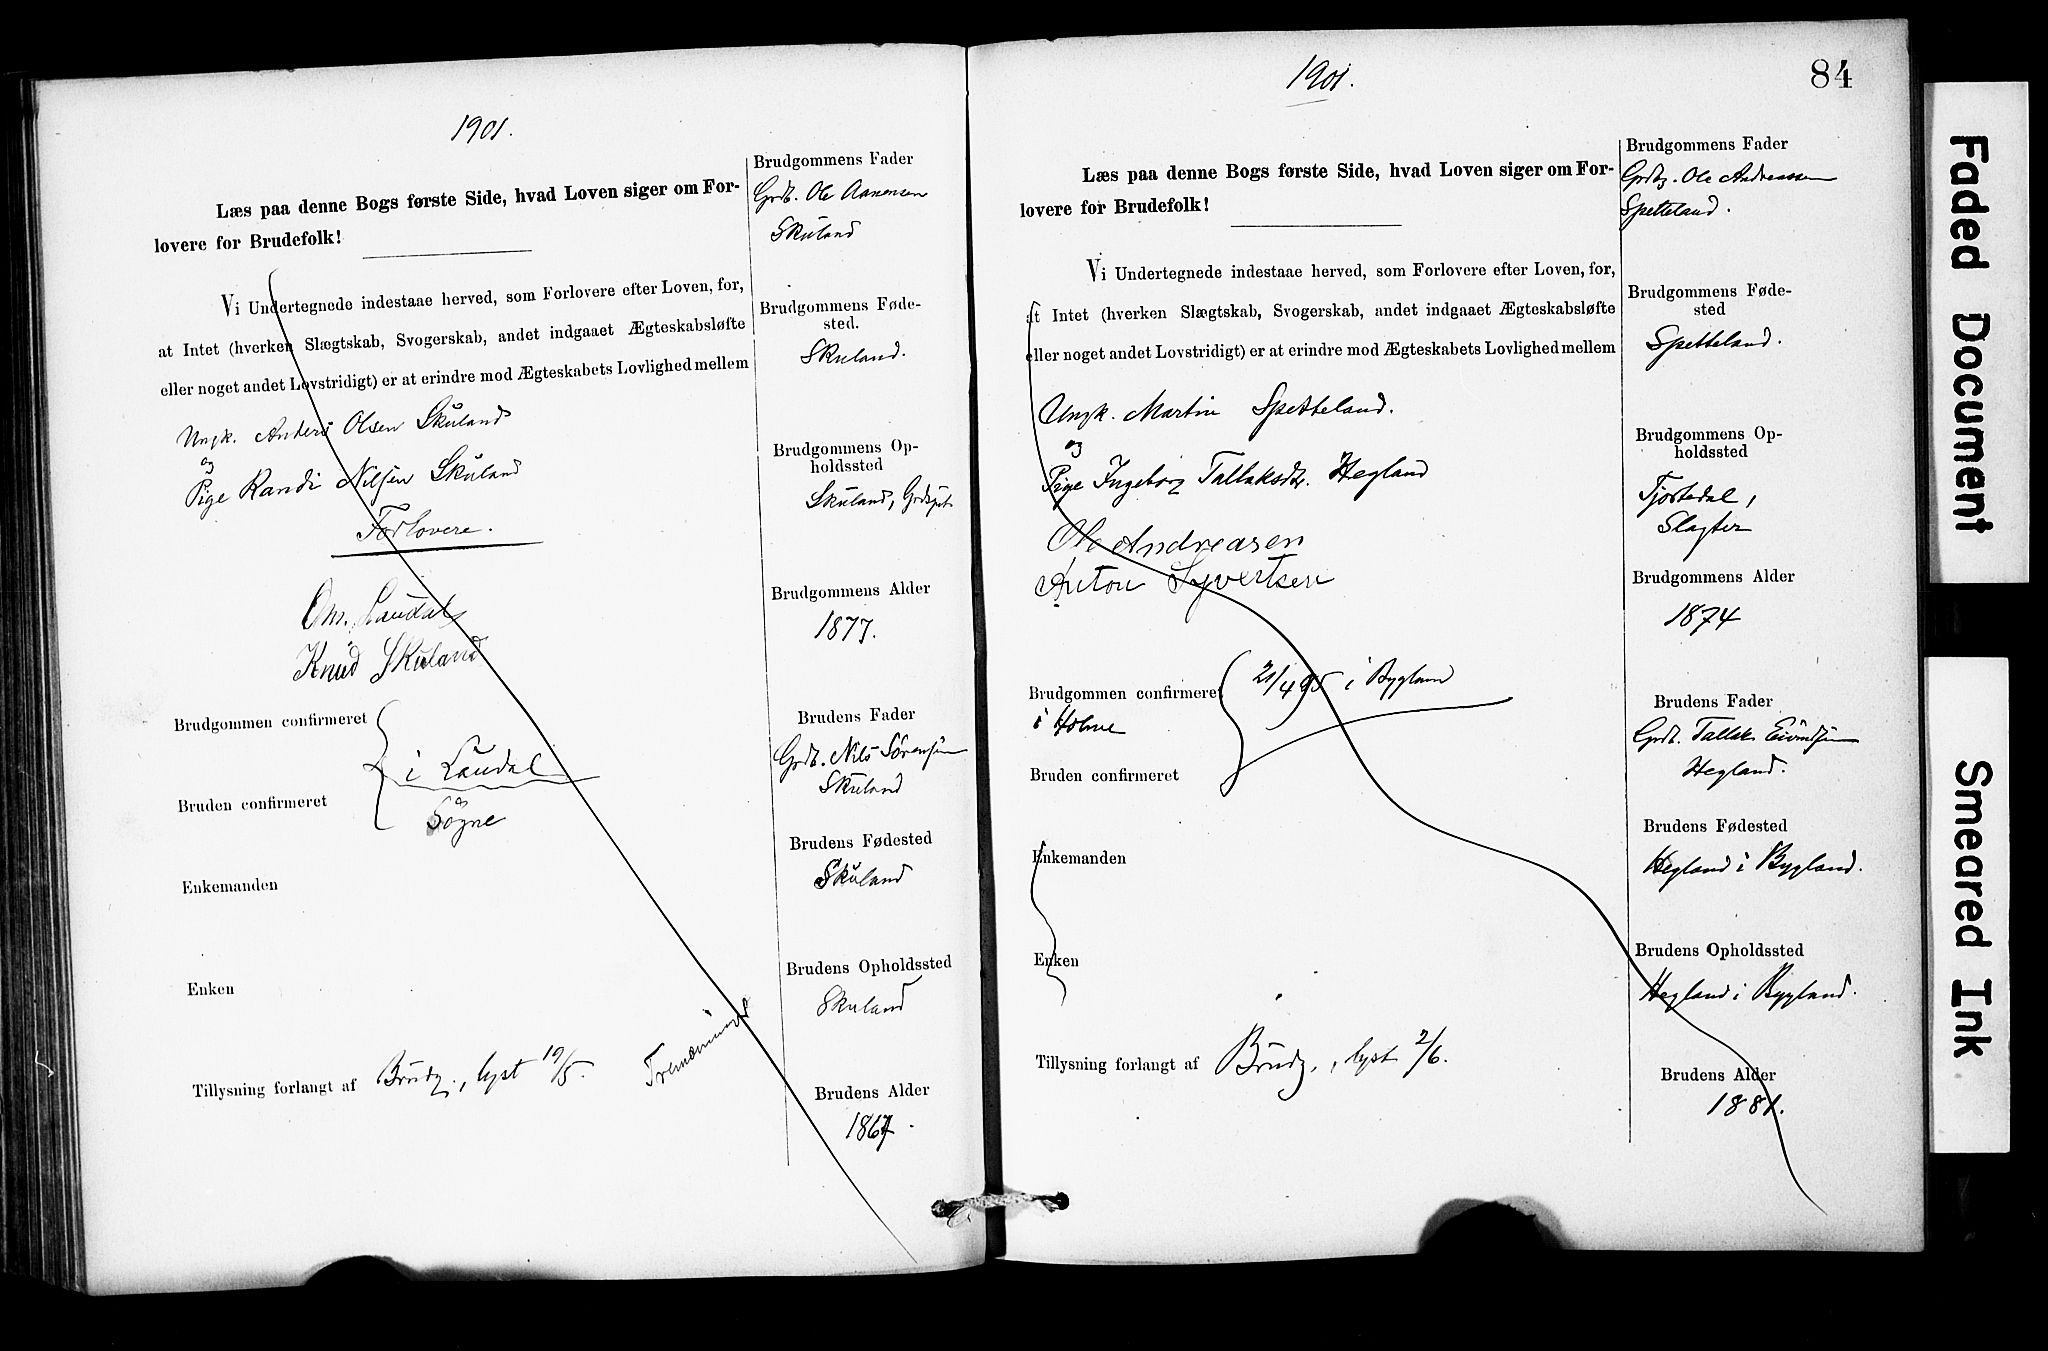 1901.
Læs paa denne Bogs første Side, hvad Loven siger om For-
lovere for Brudefolk!
Vi Undertegnede indestaae herved, som Forlovere efter Loven, for,
at Intet (hverken Slægtskab, Svogerskab, andet indgaaet Ægteskabsløfte
eller noget andet Lovstridigt) er at erindre mod Ægteskabets Lovlighed mellem
Ungk. Anders Olsen Skuland
og
Pige Randi Nilsen Skuland
Forlovere.
Om. Laudal
Knud Skuland
Brudgommen confirmeret
i Laudal
Bruden confirmeret
Søgne
Enkemanden
Enken
Tillysning forlangt af Brudg., lyst 19/5.
Tremænninger
Brudgommens Fader
Grdb. Ole Aanensen
Skuland
Brudgommens Føde-
sted.
Skuland.
Brudgommens Op-
holdssted
Skuland, Grdbs
Brudgommens Alder
1877.
Brudens Fader
Grdb. Nils Sørensen
Skuland
Brudens Fødested
Skuland
Brudens Opholdssted
Skuland
Brudens Alder
1867.
1901.
84
Læs paa denne Bogs første Side, hvad Loven siger om For-
lovere for Brudefolk!
Vi Undertegnede indestaae herved, som Forlovere efter Loven, for,
at Intet (hverken Slægtskab, Svogerskab, andet indgaaet Ægteskabsløfte
eller noget andet Lovstridigt) er at erindre mod Ægteskabets Lovlighed mellem
Ungk. Martin Spetteland.
og
Pige Ingeborg Tallaksdt. Hegland
Ole Andreasen
Anton Syvertsen
Brudgommen confirmeret 21/4 95 i Bygland
i Holme
Bruden confirmeret
Enkemanden
Enken
Tillysning forlangt af Brudg., lyst 2/6.
Brudgommens Fader
Grdbr. Ole Andreassen
Spetteland.
Brudgommens Føde-
sted
Spetteland.
Brudgommens Op-
holdssted
Tjortedal,
Slagter
Brudgommens Alder
1874
Brudens Fader
Grdb. Tallak Eivindsen
Hegland.
Brudens Fødested
Hegland i Bygland.
Brudens Opholdssted
Hegland i Bygland.
Brudens Alder
1881.
Faded Document
Smeared Ink